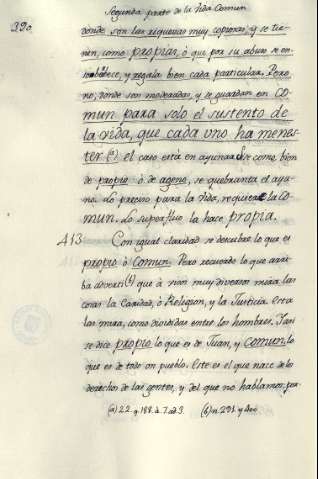 Segunda parte de la Vida Comun
390
donde son las riquezas muy copiosas, y se tie-
nen, como propias, ò que por su abuso se en-
soberbece, y regala bien cada particular. Pero
no, donde son moderadas, y se guardan en co-
mun para solo el sustento de
la vida, que cada uno ha menes-
ter (a). el caso está en ayunar. se come bien
de propio ò de ageno, se quebranta el ayu-
no. Lo preciso para la vida, requiere la co-
mun. Lo superfluo la hace propia.
413 Con igual claridad se descubre lo que es
propio ò comun. Pero recuerdo lo que aca-
ba advertí (b) que à non muy diversos mira las
cosas la Caridad, ò Religion, y la Justicia. Esta
las mira, como divididas entre los hombres. Y así
se dice propio lo que es de Juan, y comun lo
que es de todo un pueblo. Este es el que nace de los
derechos de las gentes, y del que no hablamos, por
(a) 22. q. 188. à. 7. ad 3. (b) n. 291. y